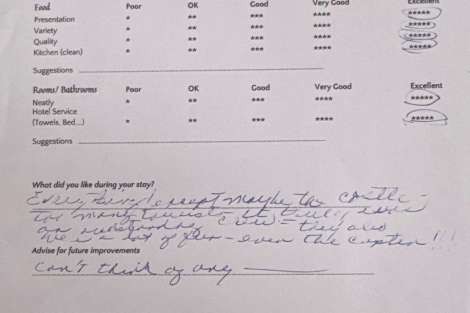 Food Poor OK Good Very Good Excellent
Presentation * ** *** **** *****
Variety * ** *** **** *****
Quality * ** *** **** *****
Kitchen (clean) * ** *** **** *****
Suggestions
Rooms/ Bathrooms Poor OK Good Very Good Excellent
Neatly * ** *** **** *****
Hotel Service
(Towels, Bed...) * ** *** **** *****
Suggestions
What did you like during your stay?
Everything! except maybe the castle -
too many tourists - It truly was
an outstanding crew - they are
a lot of fun - even the Captain!!!
Advise for future improvements
Can't think of any